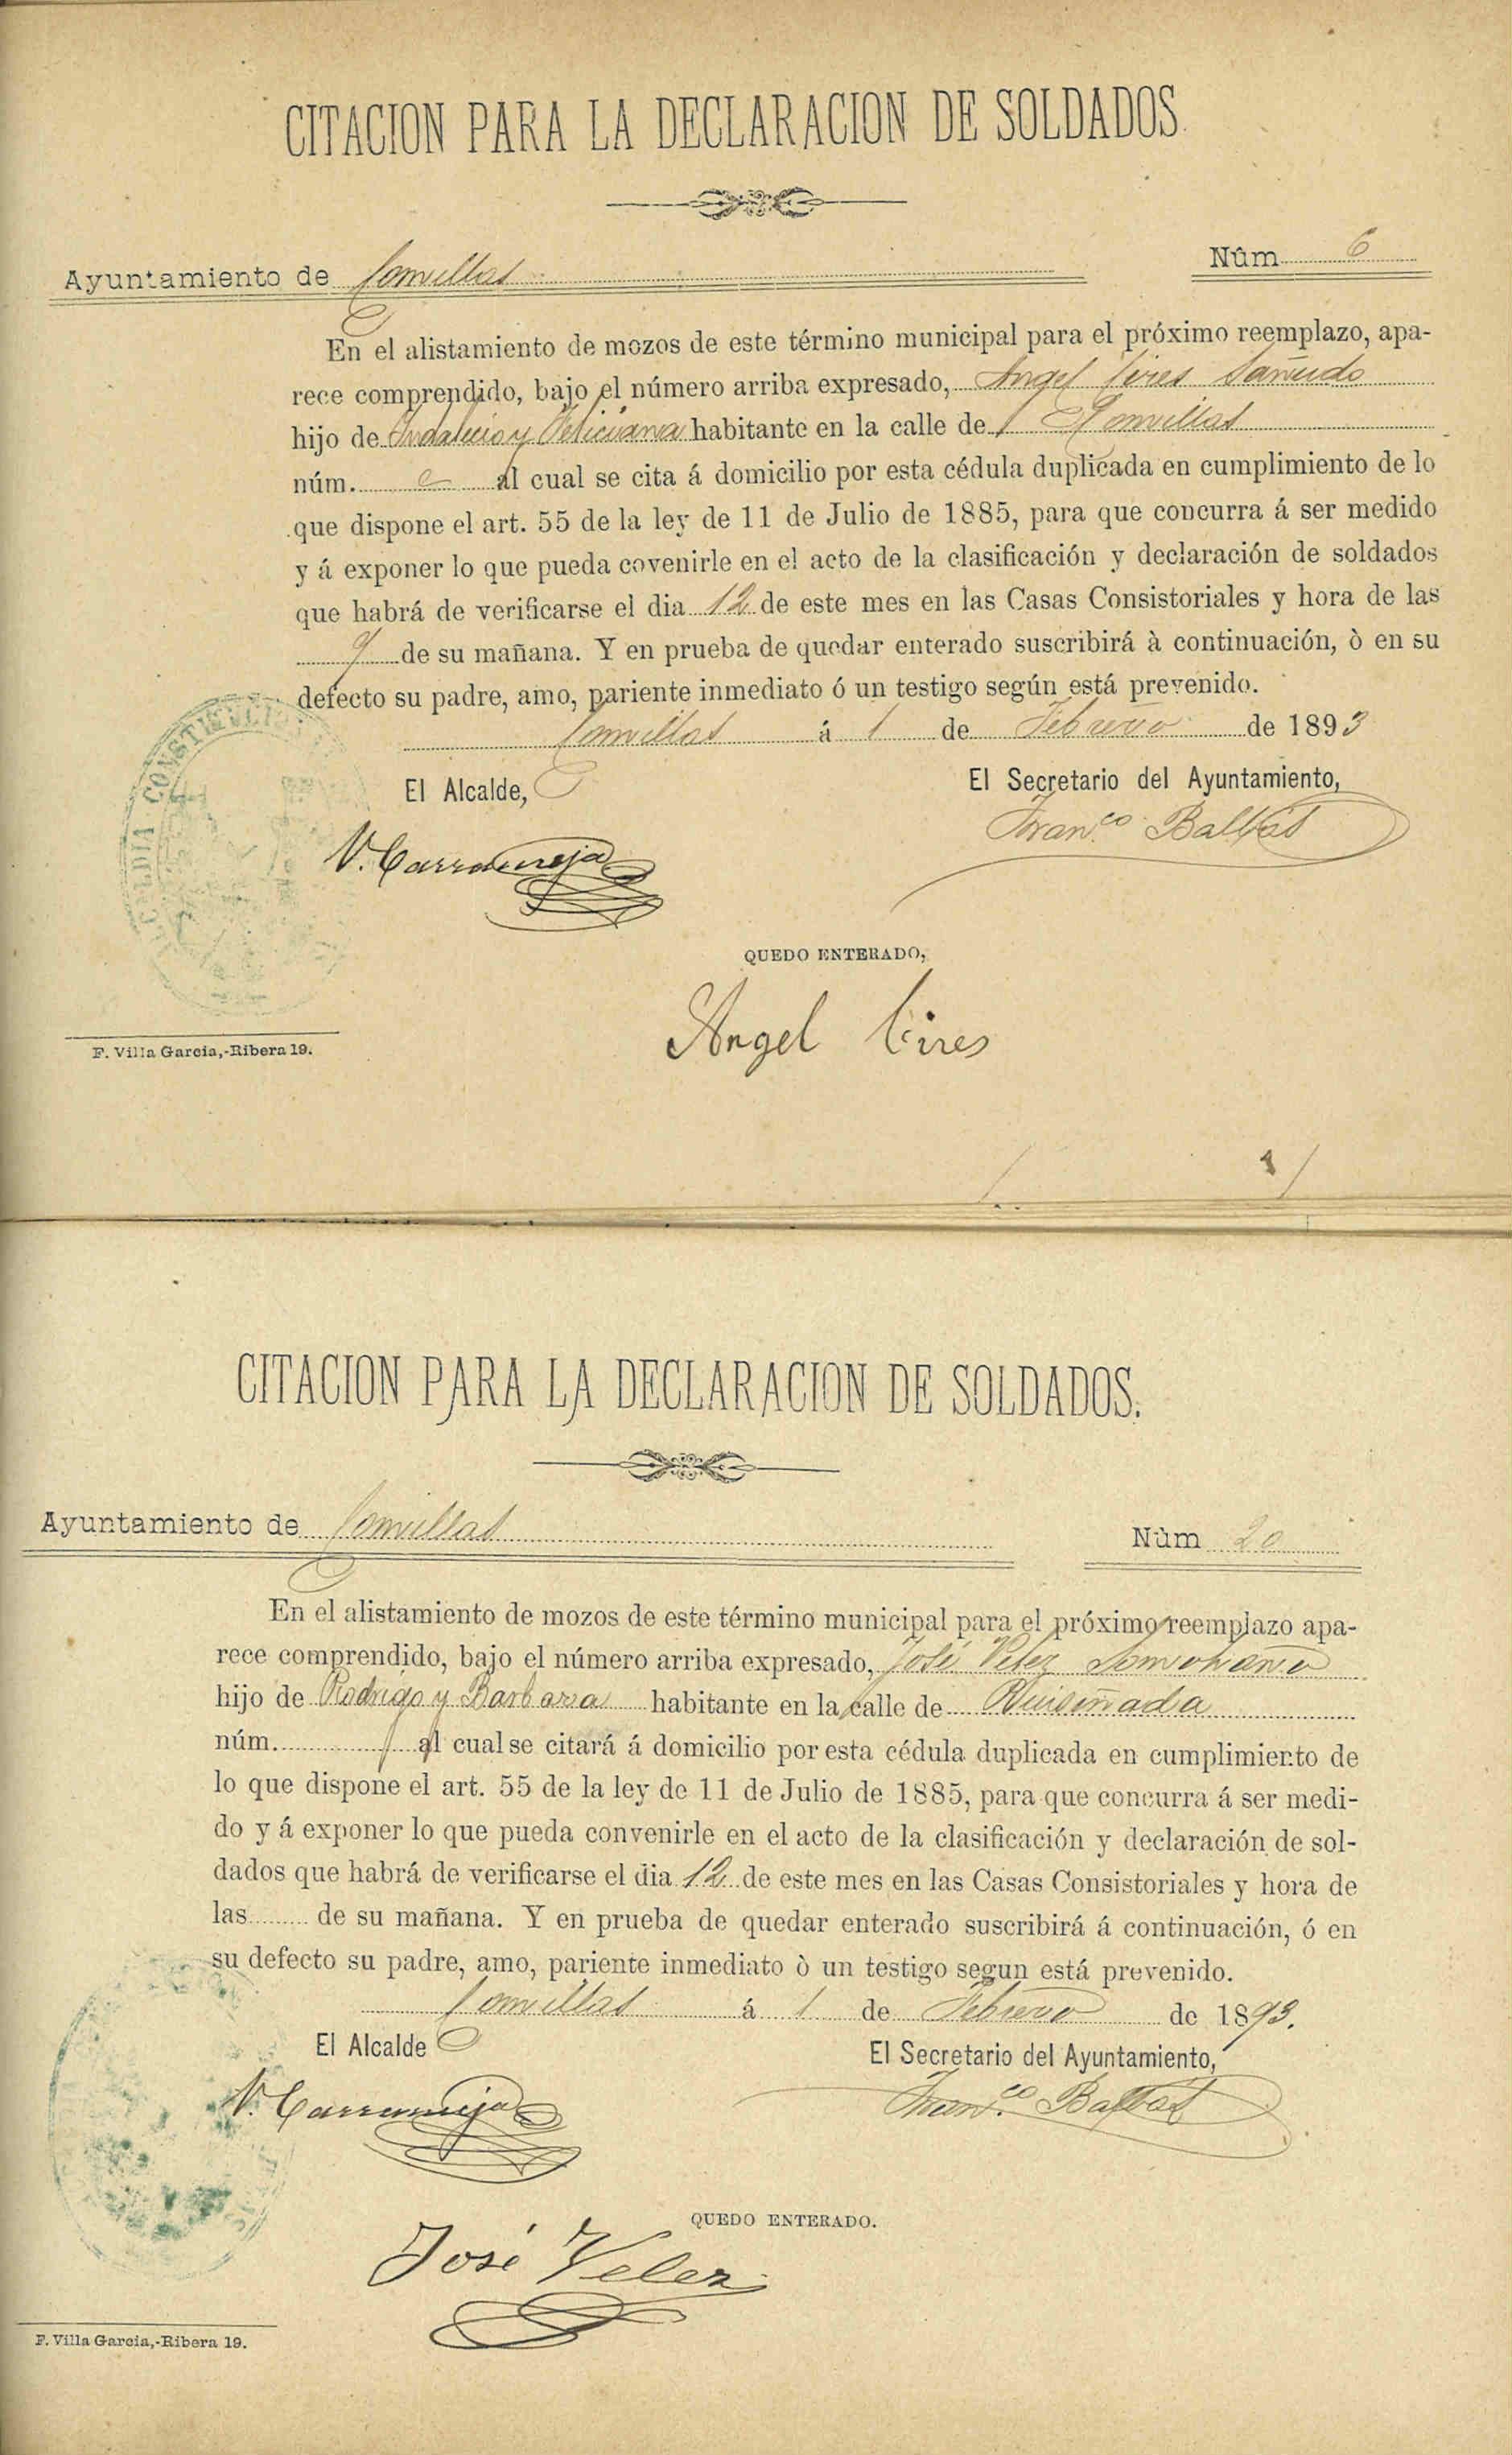 CITACION PARA LA DECLARACION DE SOLDADOS.
Ayuntamiento de Comillas
Núm 6
En el alistamiento de mozos de este término municipal para el próximo reemplazo, apa-
rece comprendido, bajo el número arriba expresado, Angel Cires Sañudo
hijo de Indalecio y Feliciana habitante en la calle de Comillas
núm. al cual se cita á domicilio por esta cédula duplicada en cumplimiento de lo
que dispone el art. 55 de la ley de 11 de Julio de 1885, para que concurra á ser medido
y á exponer lo que pueda covenirle en el acto de la clasificación y declaración de soldados
que habrá de verificarse el dia 12 de este mes en las Casas Consistoriales y hora de las
9 de su mañana. Y en prueba de quedar enterado suscribirá à continuación, ò en su
defecto su padre, amo, pariente inmediato ó un testigo según está prevenido.
Comillas á 1 de Febrero de 1893
El Alcalde,
El Secretario del Ayuntamiento,
Franco Balbás
V. Carranceja
QUEDO ENTERADO,
Angel Cires
F. Villa Garcia,-Ribera 19.
CITACION PARA LA DECLARACION DE SOLDADOS.
Ayuntamiento de Comillas
Núm 20
En el alistamiento de mozos de este término municipal para el próximo reemplazo apa-
rece comprendido, bajo el número arriba expresado, José Velez Somohano
hijo de Rodrigo y Barbara habitante en la calle de Ruiseñada
núm. al cual se citará á domicilio por esta cédula duplicada en cumplimiento de
lo que dispone el art. 55 de la ley de 11 de Julio de 1885, para que concurra á ser medi-
do y á exponer lo que pueda convenirle en el acto de la clasificación y declaración de sol-
dados que habrá de verificarse el dia 12 de este mes en las Casas Consistoriales y hora de
las de su mañana. Y en prueba de quedar enterado suscribirá á continuación, ó en
su defecto su padre, amo, pariente inmediato ò un testigo segun está prevenido.
Comillas á 1 de Febrero de 1893.
El Alcalde
El Secretario del Ayuntamiento,
V. Carranceja
Franco Balbás
QUEDO ENTERADO.
José Velez
F. Villa Garcia,-Ribera 19.